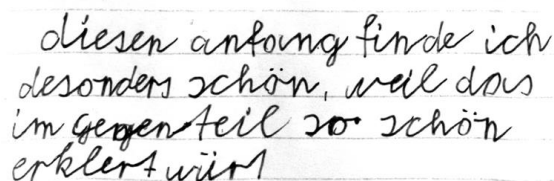 diesen anfang finde ich
desonders schön, weil das
im gegenteil so schön
erklert würt